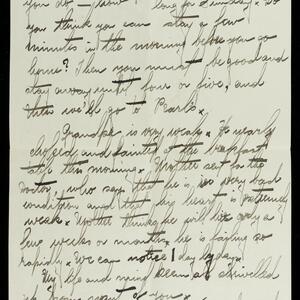 you do - how I long for Sunday. Do
you think you can stay a few
minutes in the morning before you go
home? Then you must be good and
stay away until four or five, and
then we'll go to Pearl's.
Grandpa is very weak. He nearly
choked and fainted at the breakfast
table this morning. Mother sent for the
doctor, who says that he is in very bad
condition and that his heart is extremely
weak. Mother thinks he will live only a
few weeks or months, he is failing so
rapidly. We can notice it day by day.
My life and mind seem so shrivelled